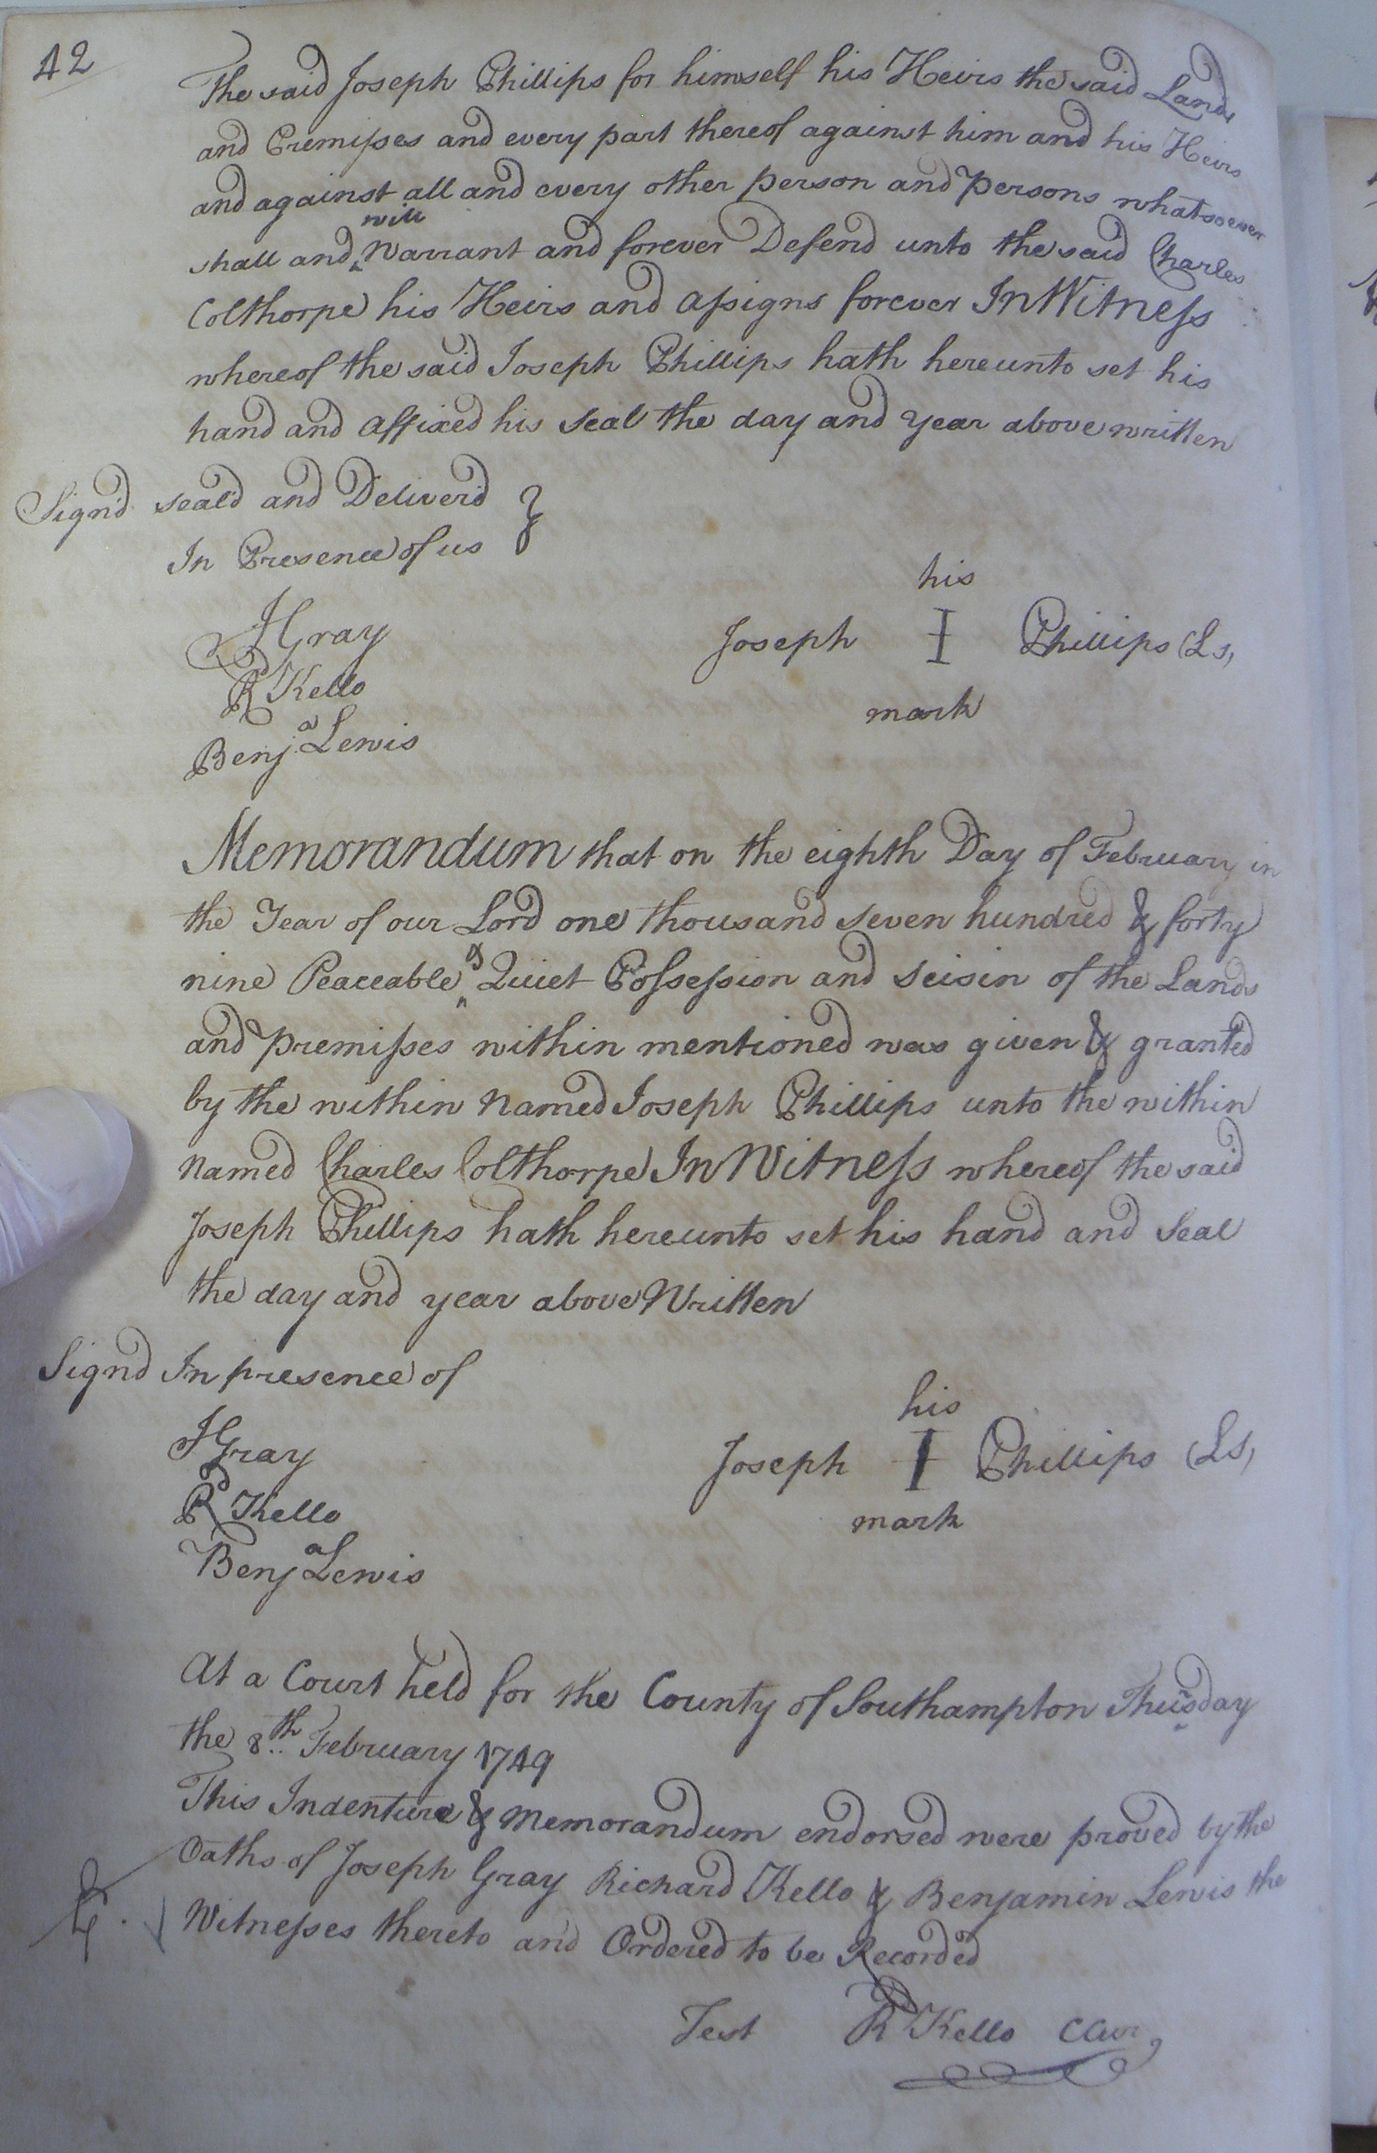 42
The said Joseph Phillips for himself his Heirs the said Lands
and Premisses and every part thereof against him and his Heirs
and against all and every other person and Persons whatsoever
will
shall and ‸ Warrant and forever Defend unto the said Charles
Colthorpe his Heirs and assigns forever In Witness
whereof the said Joseph Phillips hath hereunto set his
hand and affixed his Seal the day and year above written
Signd seald and Deliverd }
In Presence of us
his
JGray
Joseph I Phillips (Ls)
R Kello
mark
Benja Lewis
Memorandum that on the eighth Day of February in
the Year of our Lord one thousand Seven hundred & forty
nine Peaceable ‸& Quiet Possession and Seisin of the Lands
and premisses within mentioned was given & granted
by the within Named Joseph Phillips unto the within
Named Charles Colthorpe In Witness whereof the said
Joseph Phillips hath hereunto set his hand and Seal
the day and year above Written
Signd In presence of
his
JGray
Joseph I Phillips (Ls)
R Kello
mark
Benja Lewis
At a Court held for the County of Southampton Thusday
the 8th February 1749
This Indenture & Memorandum endorsed were proved by the
Oaths of Joseph Gray Richard Kello & Benjamin Lewis the
Witnesses thereto and Ordered to be Recorded
Test R Kello CCur